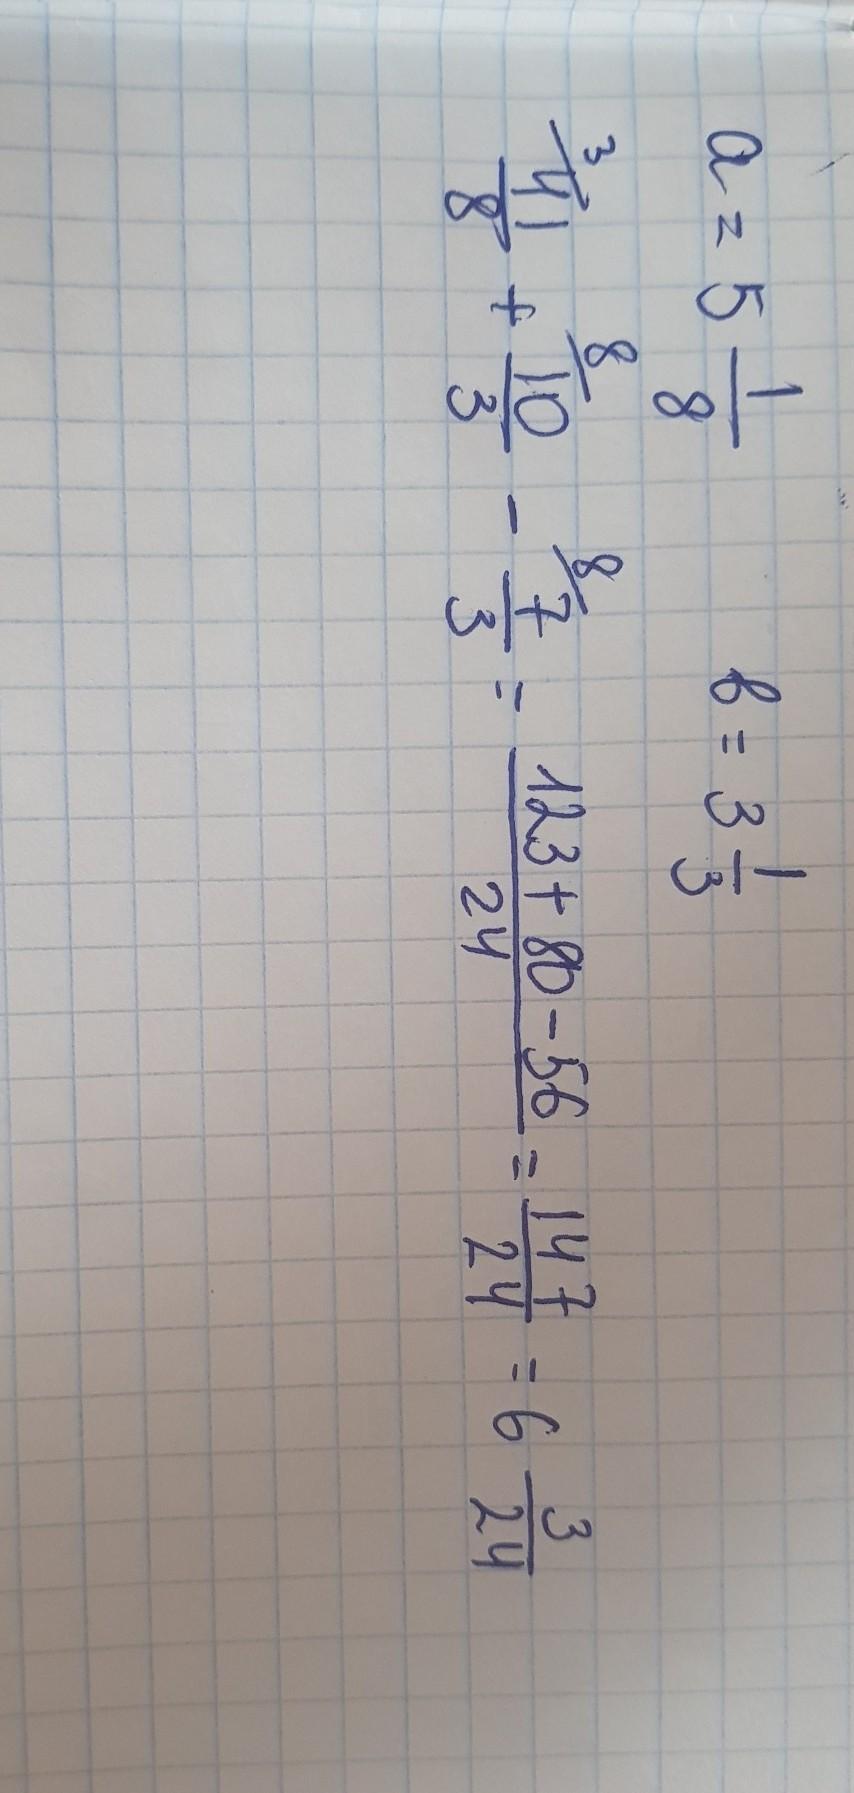 a = 5 1/8 b = 3 1/3
3/ 41/8 + 8/ 10/3 - 8/ 7/3 = (123 + 80 - 56)/24 = 147/24 = 6 3/24